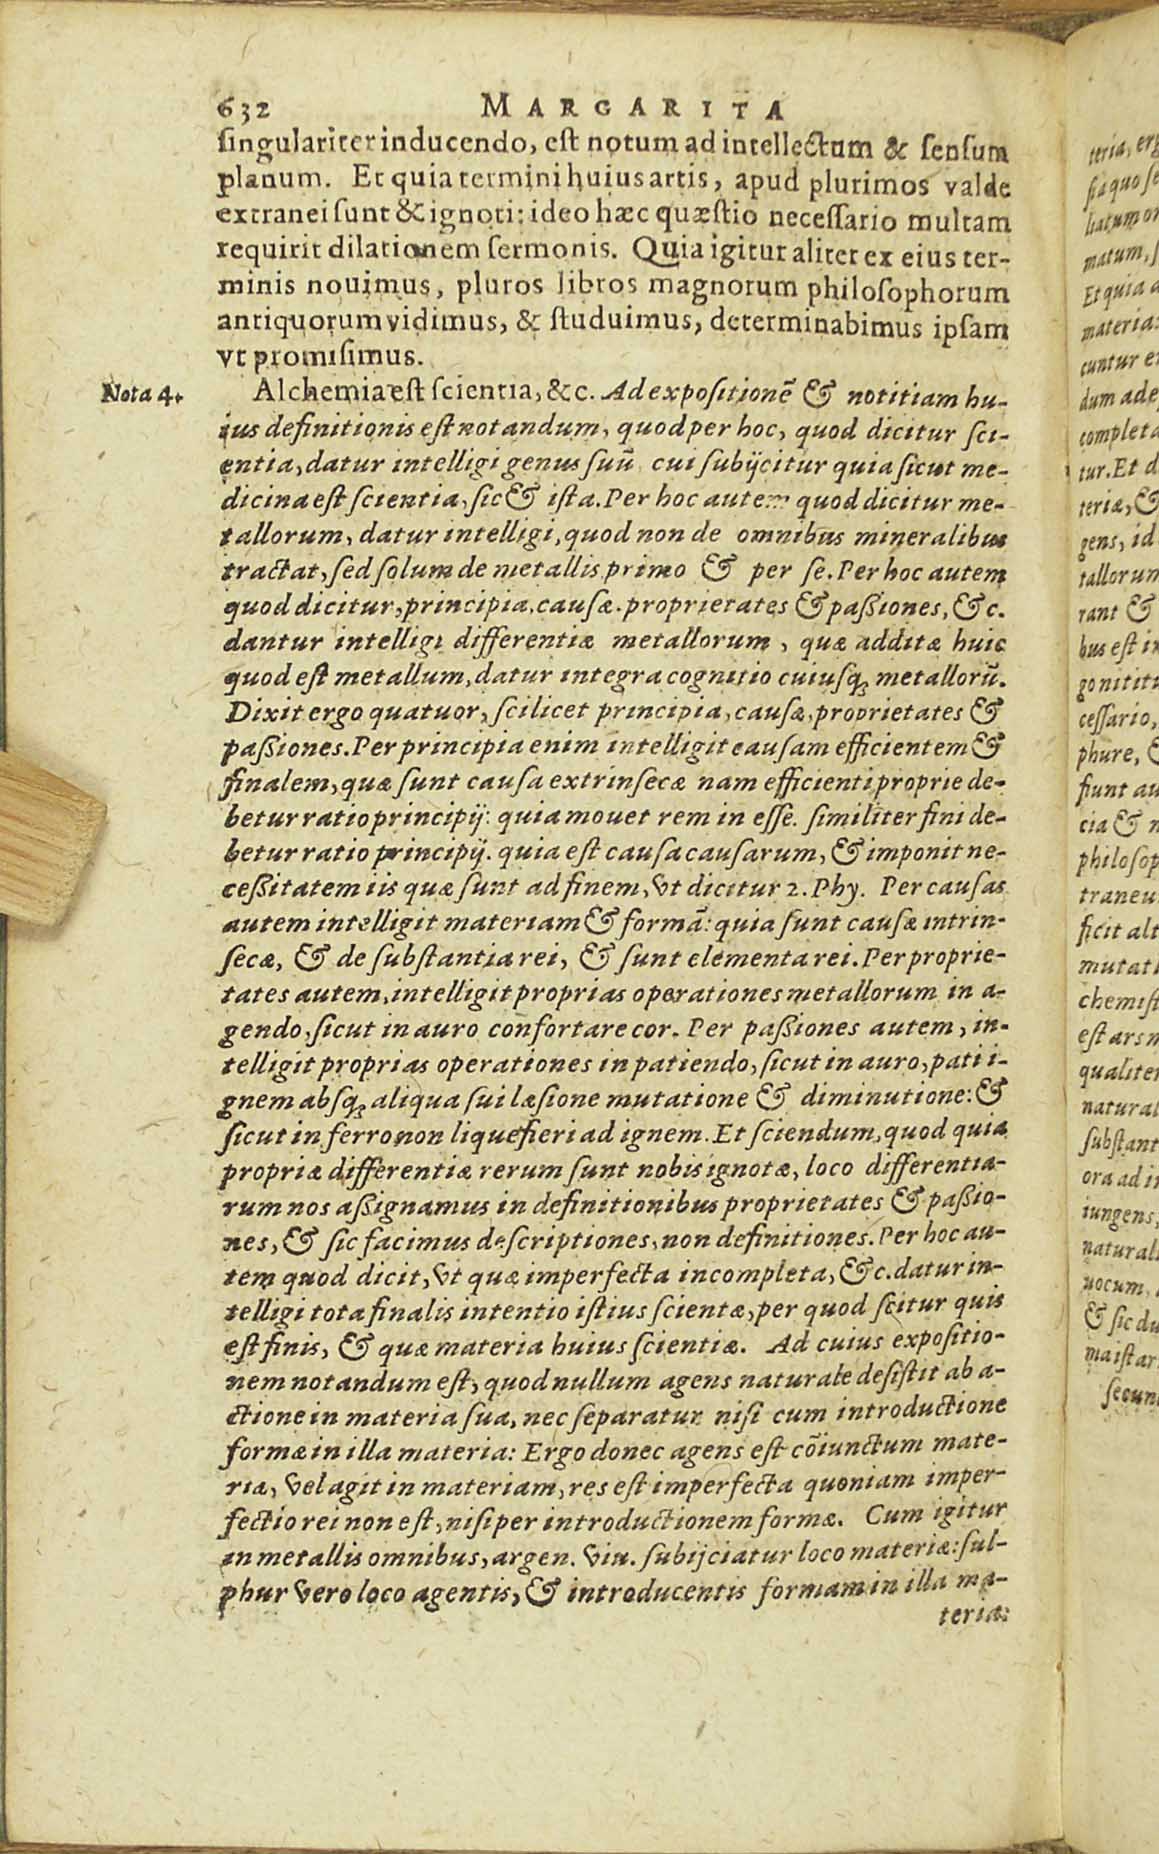 632 MARGARITA
singulariter inducendo, est notum ad intellectum & sensum
planum. Et quia termini huius artis, apud plurimos valde
extranei sunt & ignoti: ideo hæc quæstio necessario multam
requirit dilationem sermonis. Quia igitur aliter ex eius ter-
minis nouimus, pluros libros magnorum philosophorum
antiquorum vidimus, & studuimus, determinabimus ipsam
vt promisimus.
Nota 4.
Alchemia est scientia, &c. Ad expositionē & notitiam hu-
ius definitionis est notandum, quod per hoc, quod dicitur sci-
entia, datur intelligi genus suū cui subijcitur quia sicut me-
dicina est scientia, sic & ista. Per hoc autem quod dicitur me-
tallorum, datur intelligi, quod non de omnibus mineralibus
tractat, sed solum de metallis primo & per se. Per hoc autem
quod dicitur, principia, causæ. proprietates & passiones, &c.
dantur intelligi differentiæ metallorum, quæ additæ huic
quod est metallum, datur integra cognitio cuiusq; metallorū.
Dixit ergo quatuor, scilicet principia, causæ, proprietates &
passiones. Per principia enim intelligit eausam efficientem &
finalem, quæ sunt causa extrinsecæ nam efficienti proprie de-
betur ratio principij: quia mouet rem in esse. similiter fini de-
betur ratio principij. quia est causa causarum, & imponit ne-
cessitatem iis quæ sunt ad finem, vt dicitur 2. Phy. Per causas
autem intelligit materiam & formā: quia sunt causæ intrin-
secæ, & de substantia rei, & sunt elementa rei. Per proprie-
tates autem, intelligit proprias operationes metallorum in a-
gendo, sicut in auro confortare cor. Per passiones autem, in-
telligit proprias operationes in patiendo, sicut in auro, pati i-
gnem absq; aliqua sui læsione mutatione & diminutione: &
sicut in ferro non liquefieri ad ignem. Et sciendum, quod quia
propriæ differentiæ rerum sunt nobis ignotæ, loco differentia-
rum nos assignamus in definitionibus proprietates & passio-
nes, & sic facimus descriptiones, non definitiones. Per hoc au-
tem quod dicit, vt quæ imperfecta incompleta, &c. datur in-
telligi tota finalis intentio istius scientæ, per quod scitur quis
est finis, & quæ materia huius scientiæ. Ad cuius expositio-
nem notandum est, quod nullum agens naturale desistit ab a-
ctione in materia sua, nec separatur nisi cum introductione
formæ in illa materia: Ergo donec agens est cōiunctum mate-
ria, vel agit in materiam, res est imperfecta quoniam imper-
fectio rei non est, nisi per introductionem formæ. Cum igitur
in metallis omnibus, argen. viu. subijciatur loco materiæ: sul-
phur vero loco agentis, & introducentis formam in illa ma-
teria:
teria, erg
sia quo se
matum, s
Et quia a
materia:
cuntur e
dum ade
completa
tur. Et d
teriæ, &
gens, id
tallorum
rant &
bus est in
go nititu
cessario,
phure, &
fiunt au
cia & n
philosop
traneu
ficit alt
mutati
chemist
est ars n
qualiter
natural
substant
ora ad in
iungens,
naturali
uocum,
& sic du
ma ist ar
secun